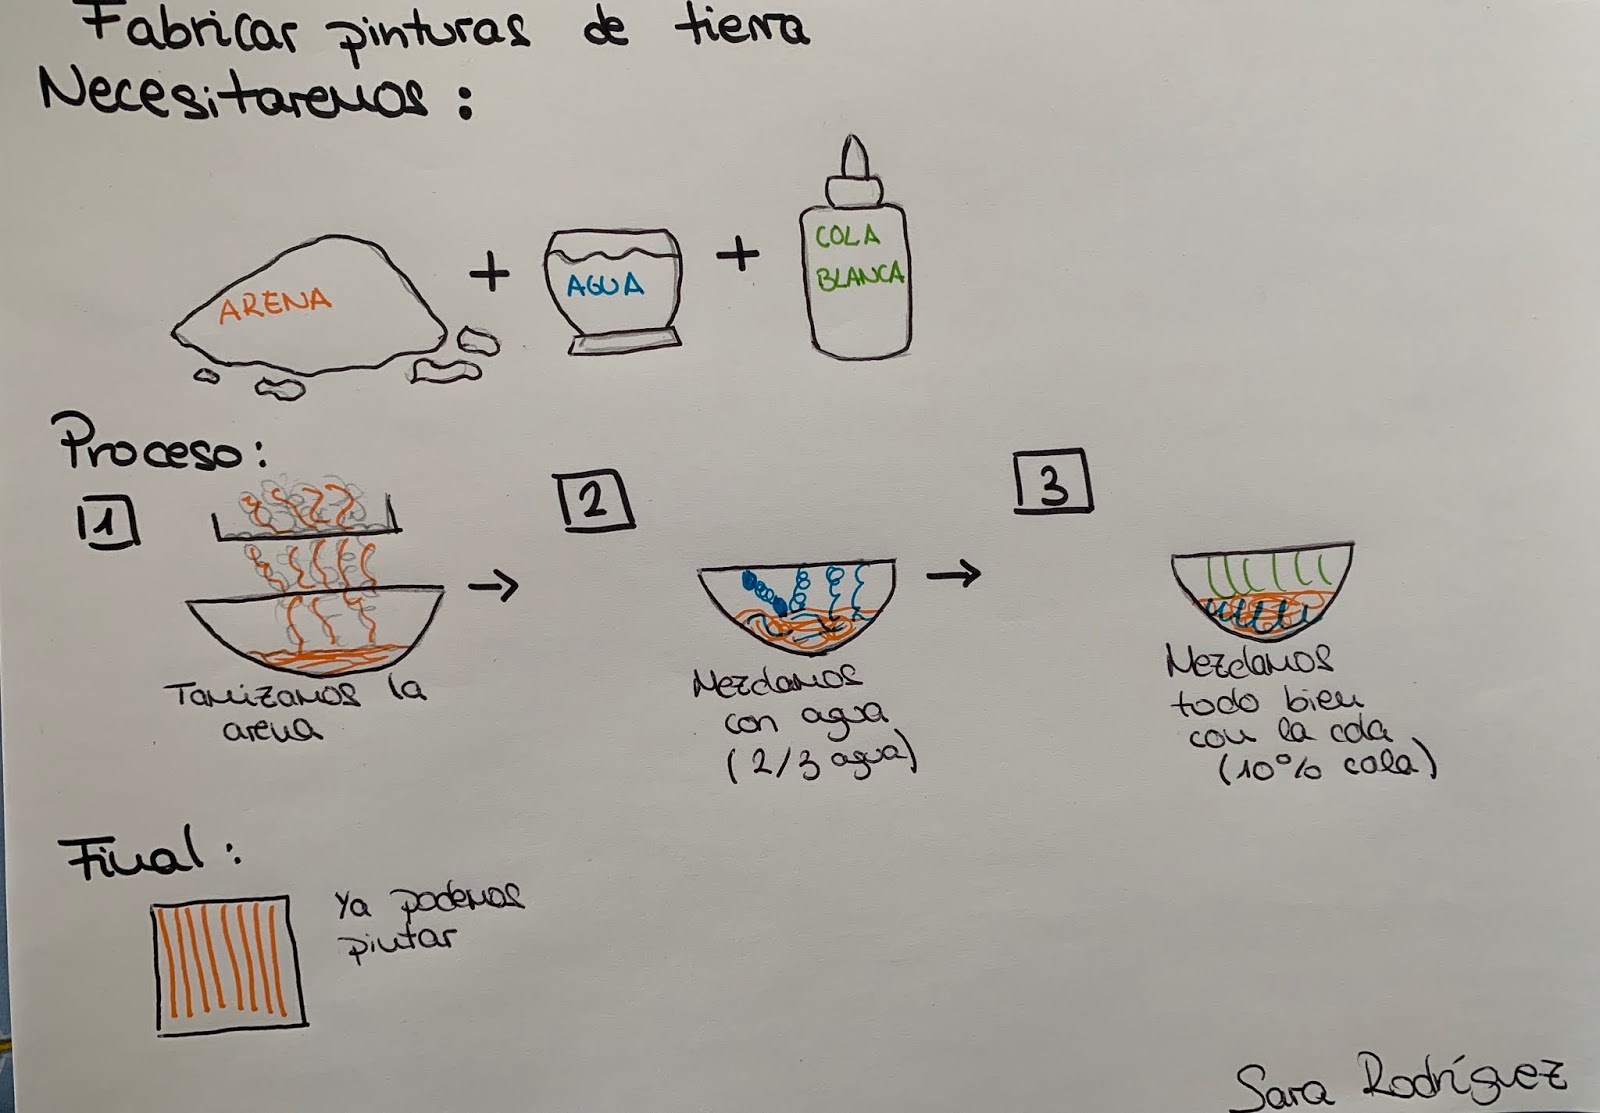 Fabricar pinturas de tierra
Necesitaremos:
ARENA + AGUA + COLA
BLANCA
Proceso:
1 → 2 → 3
Tamizamos la
arena
Mezclamos
con agua
(2/3 agua)
Mezclamos
todo bien
con la cola
(10% cola)
Final:
Ya podemos
pintar
Sara Rodríguez